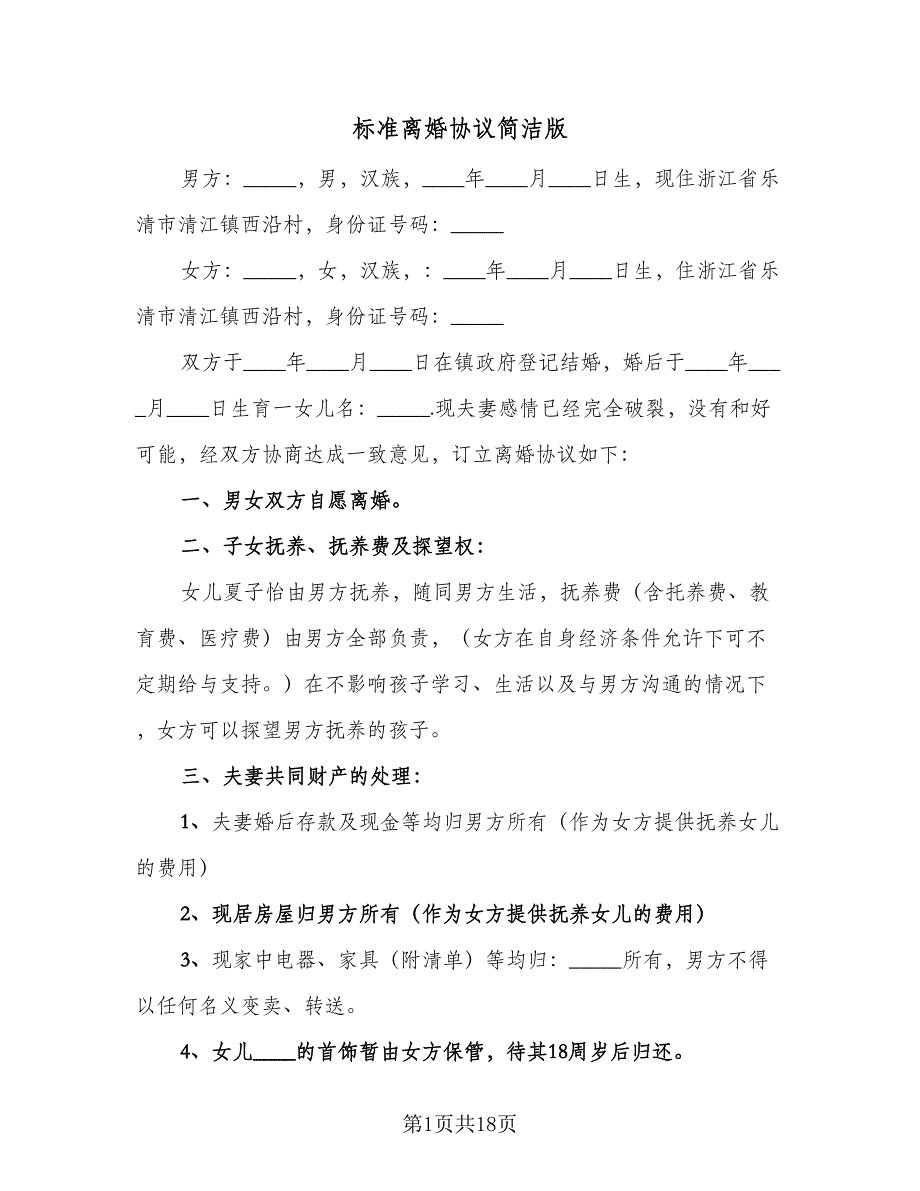 标准离婚协议简洁版
男方：_____，男，汉族，____年____月____日生，现住浙江省乐
清市清江镇西沿村，身份证号码：_____
女方：_____，女，汉族，：____年____月____日生，住浙江省乐
清市清江镇西沿村，身份证号码：_____
双方于____年____月____日在镇政府登记结婚，婚后于____年___
_月____日生育一女儿名：_____.现夫妻感情已经完全破裂，没有和好
可能，经双方协商达成一致意见，订立离婚协议如下：
一、男女双方自愿离婚。
二、子女抚养、抚养费及探望权：
女儿夏子怡由男方抚养，随同男方生活，抚养费（含托养费、教
育费、医疗费）由男方全部负责，（女方在自身经济条件允许下可不
定期给与支持。）在不影响孩子学习、生活以及与男方沟通的情况下
，女方可以探望男方抚养的孩子。
三、夫妻共同财产的处理：
1、夫妻婚后存款及现金等均归男方所有（作为女方提供抚养女儿
的费用）
2、现居房屋归男方所有（作为女方提供抚养女儿的费用）
3、现家中电器、家具（附清单）等均归：_____所有，男方不得
以任何名义变卖、转送。
4、女儿____的首饰暂由女方保管，待其18周岁后归还。
第1页共18页